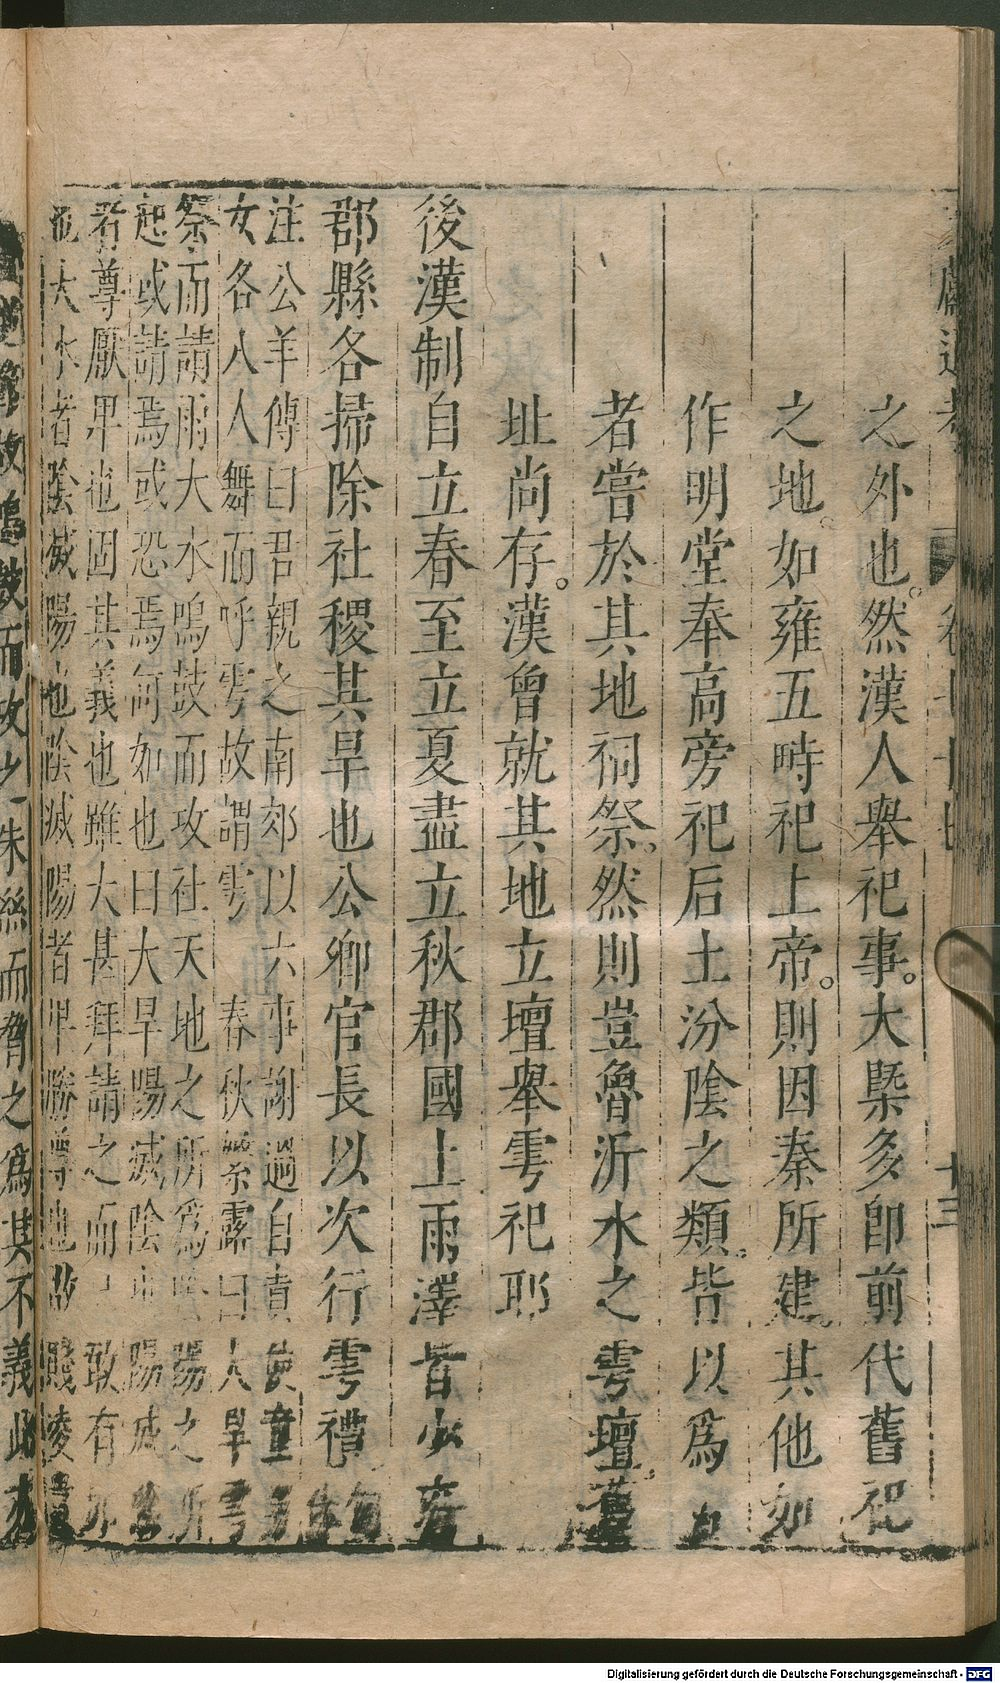 之外也。然漢人舉祀事。大槩多卽前代舊祀
之地。如雍五畤祀上帝。則因秦所建。其他如
作明堂奉高旁祀后土汾陰之類。皆以爲
者嘗於其地祠祭。然則豈魯沂水之雩壇。舊
址尚存。漢曾就其地立壇舉雩祀耶
後漢制自立春至立夏盡立秋郡國上雨澤若少府
郡縣各掃除社稷其旱也公卿官長以次行雩禮
注公羊傳曰君親之南郊以六事謝過自責使童男
女各八人舞而呼雩故謂雩 春秋繁露曰大旱雩
祭而請雨大水鳴鼓而攻社天地之所爲陰陽之所
起或請焉或恐焉何如也曰大旱陽滅陰也陽滅陰
者尊厭卑也固其義也雖大甚拜請之而已敢有加
也大水者陰滅陽也陰滅陽者卑勝尊也故
賤凌貴
鳴鼓而攻之朱絲而脅之爲其不義此亦
卷七十七
十三
Digitalisierung gefördert durch die Deutsche Forschungsgemeinschaft - DFG